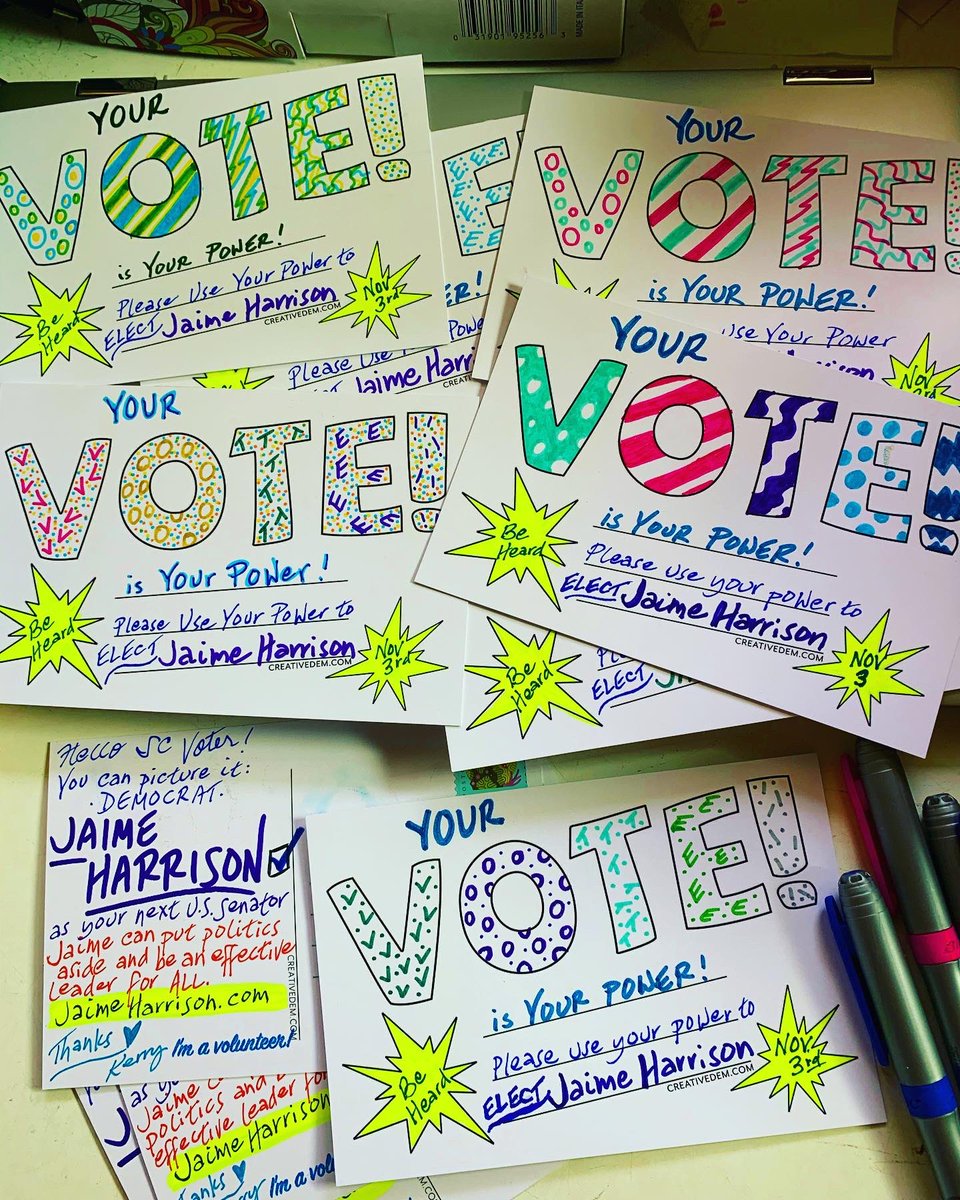 0 31901 95256 3
MADE IN ITAL
YOUR
VOTE!
is YOUR POWER!
Please Use Your Power to
ELECT Jaime Harrison
CREATIVEDEM.COM
Be
Heard
Nov
3rd
E
ER!
Please Use
Jaime Harrison
YOUR
VOTE!
is YOUR POWER!
Use Your Power
Harrison
Nov
3rd
YOUR
VOTE!
is Your Power!
Please Use Your Power to
ELECT Jaime Harrison
CREATIVEDEM.COM
Be
Heard
Nov
3rd
YOUR
VOTE!
is YOUR POWER!
Please use your power to
ELECT Jaime Harrison
CREATIVEDEM.COM
Be
Heard
Nov
3
Be
Heard
ELECT
Hello SC Voter!
You can picture it:
·DEMOCRAT·
JAIME
HARRISON
as your next U.S. Senator
Jaime can put politics
aside and be an effective
leader for ALL.
JaimeHarrison.com
Thanks
Kerry I'm a volunteer!
CREATIVEDEM.COM
YOUR
VOTE!
is YOUR POWER!
Please use your power to
ELECT Jaime Harrison
CREATIVEDEM.COM
Be
Heard
Nov.
3rd
as
Jaime
politics and
effective leader for
JaimeHarrison
Thanks
Kerry I'm a volun